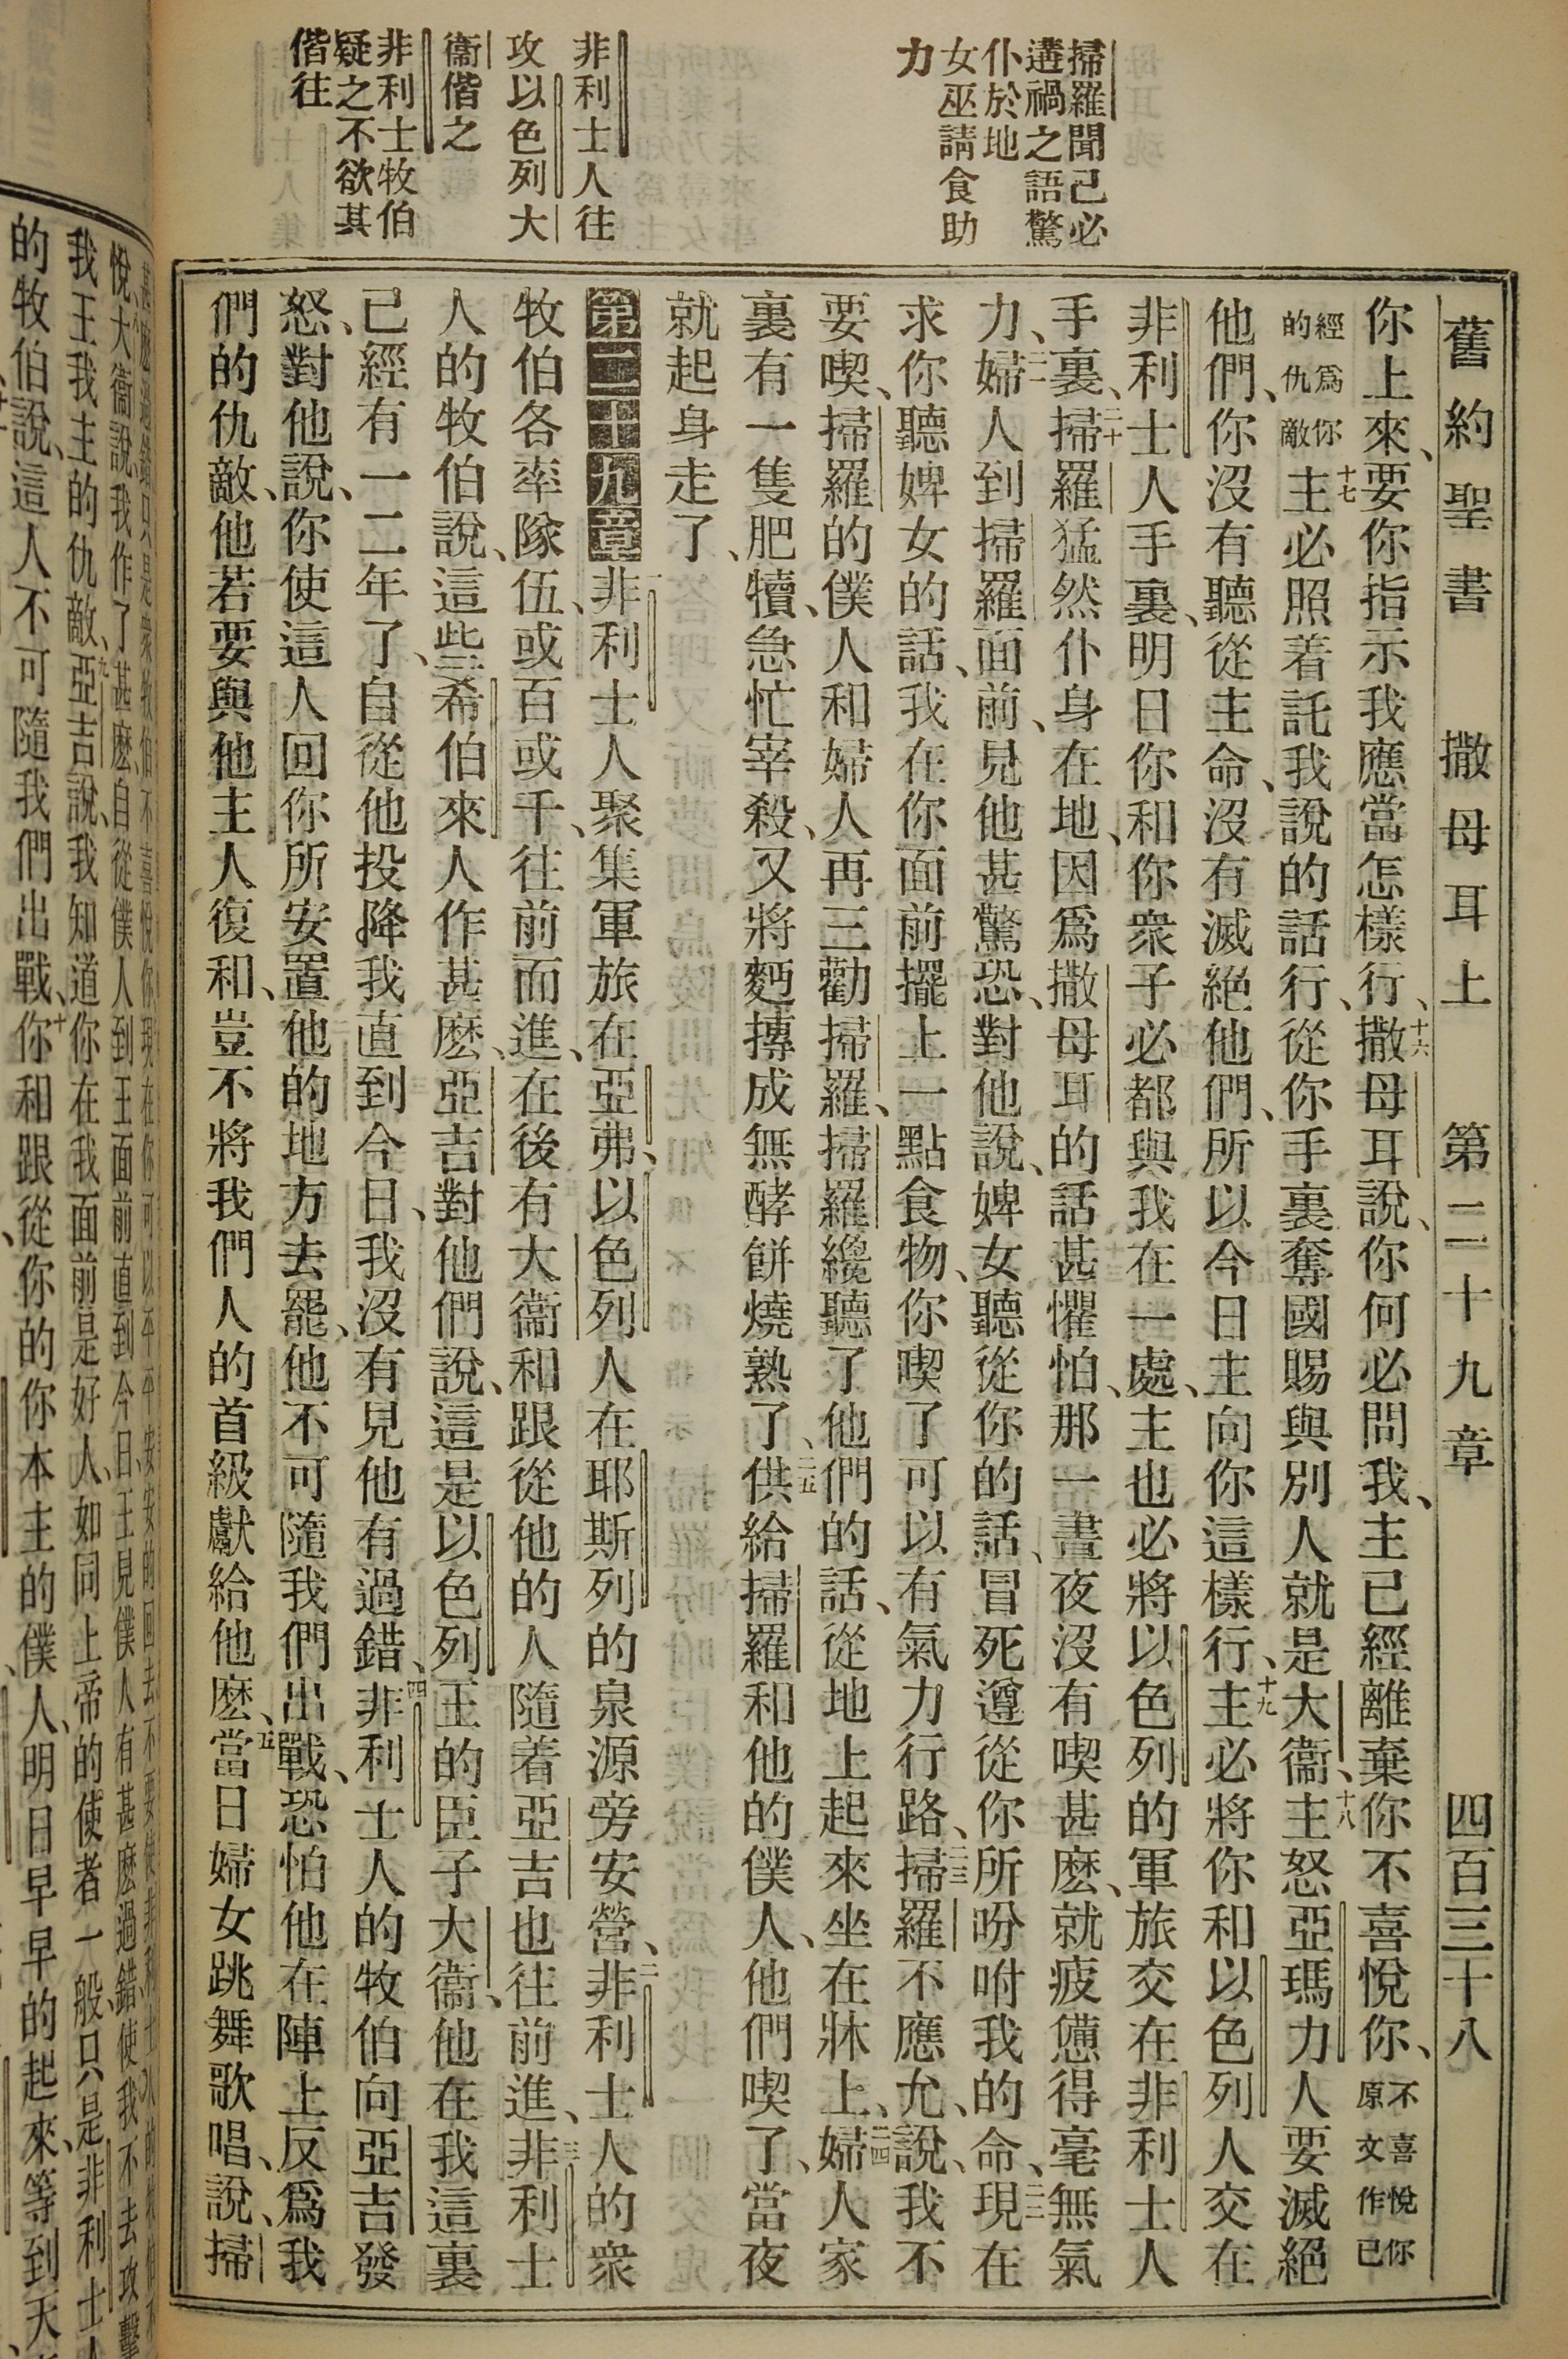 舊約聖書 撒母耳上 第二十九章 四百三十八
掃羅聞己必
遘禍之語驚
仆於地
女巫請食助
力
非利士人往
攻以色列大
衞偕之
非利士牧伯
疑之不欲其
偕往
你上來、要你指示我應當怎樣行、十六撒母耳說、你何必問我、主已經離棄你不喜悅你、不喜悅你原文作已
經爲你的仇敵十七主必照着託我說的話行、從你手裏奪國賜與別人就是大衞、十八主怒亞瑪力人要滅絕
他們、你沒有聽從主命、沒有滅絕他們、所以今日主向你這樣行、十九主必將你和以色列人交在
非利士人手裏、明日你和你衆子必都與我在一處、主也必將以色列的軍旅交在非利士人
手裏、二十掃羅猛然仆身在地、因爲撒母耳的話甚懼怕、那一晝夜沒有喫甚麽、就疲憊得毫無氣
力、二一婦人到掃羅面前、見他甚驚恐、對他說、婢女聽從你的話、冒死遵從你所吩咐我的命、二二現在
求你聽婢女的話、我在你面前擺上一點食物、你喫了可以有氣力行路、二三掃羅不應允、說、我不
要喫、掃羅的僕人和婦人再三勸掃羅、掃羅纔聽了他們的話、從地上起來坐在牀上、二四婦人家
裏有一隻肥犢、急忙宰殺、又將麪摶成無酵餅燒熟了、二五供給掃羅和他的僕人、他們喫了、當夜
就起身走了、
第二十九章 一非利士人聚集軍旅在亞弗、以色列人在耶斯列的泉源旁安營、二非利士人的衆
牧伯各率隊伍、或百或千、往前而進、在後有大衞和跟從他的人隨着亞吉也往前進、三非利士
人的牧伯說、這些希伯來人作甚麽、亞吉對他們說、這是以色列王的臣子大衞、他在我這裏
已經有一二年了、自從他投降我直到今日、我沒有見他有過錯、四非利士人的牧伯向亞吉發
怒、對他說、你使這人回你所安置他的地方去罷、他不可隨我們出戰、恐怕他在陣上反爲我
們的仇敵、他若要與他主人復和、豈不將我們人的首級獻給他麽、五當日婦女跳舞歌唱、說、掃
悅、大衞說、我作了甚麽、自從僕人到王面前直到今日、王見僕人有甚麽過錯、使我不去攻擊
我王我主的仇敵、九亞吉說、我知道你在我面前是好人、如同上帝的使者一般、只是非利士人
的牧伯說、這人不可隨我們出戰、十你和跟從你的你本主的僕人、明日早早的起來、等到天